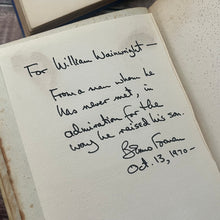 For William Wainwright —
From a man whom he
has never met, in
admiration for the
way he raised his son.
Oct. 13, 1970 —